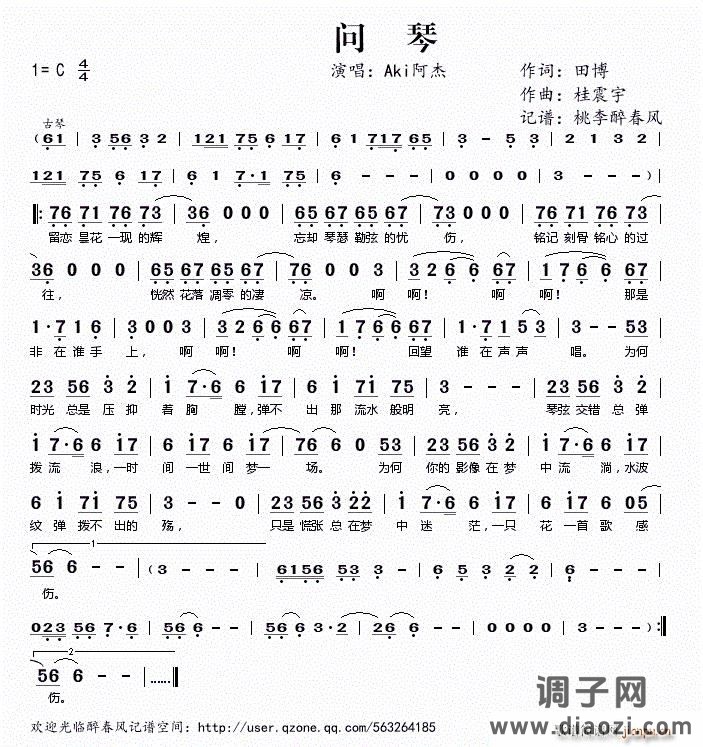 问 琴
1=C 4/4 演唱：Aki阿杰 作词：田博
作曲：桂震宇
记谱：桃李醉春风
古琴
(61 | 3 56 3 2 | 121 75 6 17 | 6 1 717 65 | 3 - 53 | 2 1 3 2
121 75 | 6 1 7·1 75 | 6 - - - | 0 0 0 0 | 3 - - -) |
‖: 76 71 76 73 | 36 0 0 0 | 65 67 65 67 | 73 0 0 0 | 76 71 76 73
留恋 昙花 一现 的辉 煌， 忘却 琴瑟 勒弦 的忧 伤， 铭记 刻骨 铭心 的过
36 0 0 0 | 65 67 65 67 | 76 0 0 3 | 3 266 67 | 1 766 67
往， 恍然 花落 凋零 的凄 凉。 啊 啊！ 啊 啊！ 那是
1·7 1 6 | 3 0 0 3 | 3 266 67 | 1 766 67 | 1·7 1 53 | 3 - - 53
非 在 谁 手 上， 啊 啊！ 啊 啊！ 回望 谁 在 声 声 唱。 为何
23 56 3 2 | 1 7·6 6 17 | 6 1 71 75 | 3 - - 0 | 23 56 3 2
时光 总是 压 抑 着 胸 膛，弹不 出 那 流水 般明 亮， 琴弦 交错 总 弹
1 7·6 6 17 | 6 17 6 17 | 76 6 0 53 | 23 56 3 2 | 1 7·6 6 17
拨 流 浪，一时 间 一世 间 梦一 场。 为何 你的 影像 在 梦 中 流 淌，水波
6 1 71 75 | 3 - - 0 | 23 56 3 22 | 1 7·6 6 17 | 6 17 6 05
纹 弹 拨不 出的 殇， 只是 慌张 总 在梦 中 迷 茫，一只 花 一首 歌 感
1
56 6 - - | (3 - - - | 6156 53 3 | 6 5 3 2 2 | 6 - - -
伤。
023 56 7·6 | 6 - - - | 56 56 3·2 | 26 6 - - | 0 0 0 0 | 3 - - -) :‖
2
56 6 - - |……‖
伤。
欢迎光临醉春风记谱空间：http://user.qzone.qq.com/563264185
调子网
www.diaozi.com